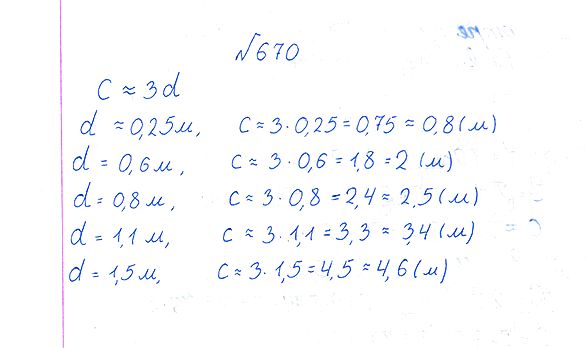 №670
C ≈ 3d
d ≈ 0,25м, C ≈ 3·0,25 = 0,75 ≈ 0,8(м)
d = 0,6м, C ≈ 3·0,6 = 1,8 = 2 (м)
d = 0,8м, C ≈ 3·0,8 = 2,4 ≈ 2,5(м)
d = 1,1 м, C ≈ 3·1,1 = 3,3 ≈ 3,4 (м)
d = 1,5м, C ≈ 3·1,5 = 4,5 ≈ 4,6(м)